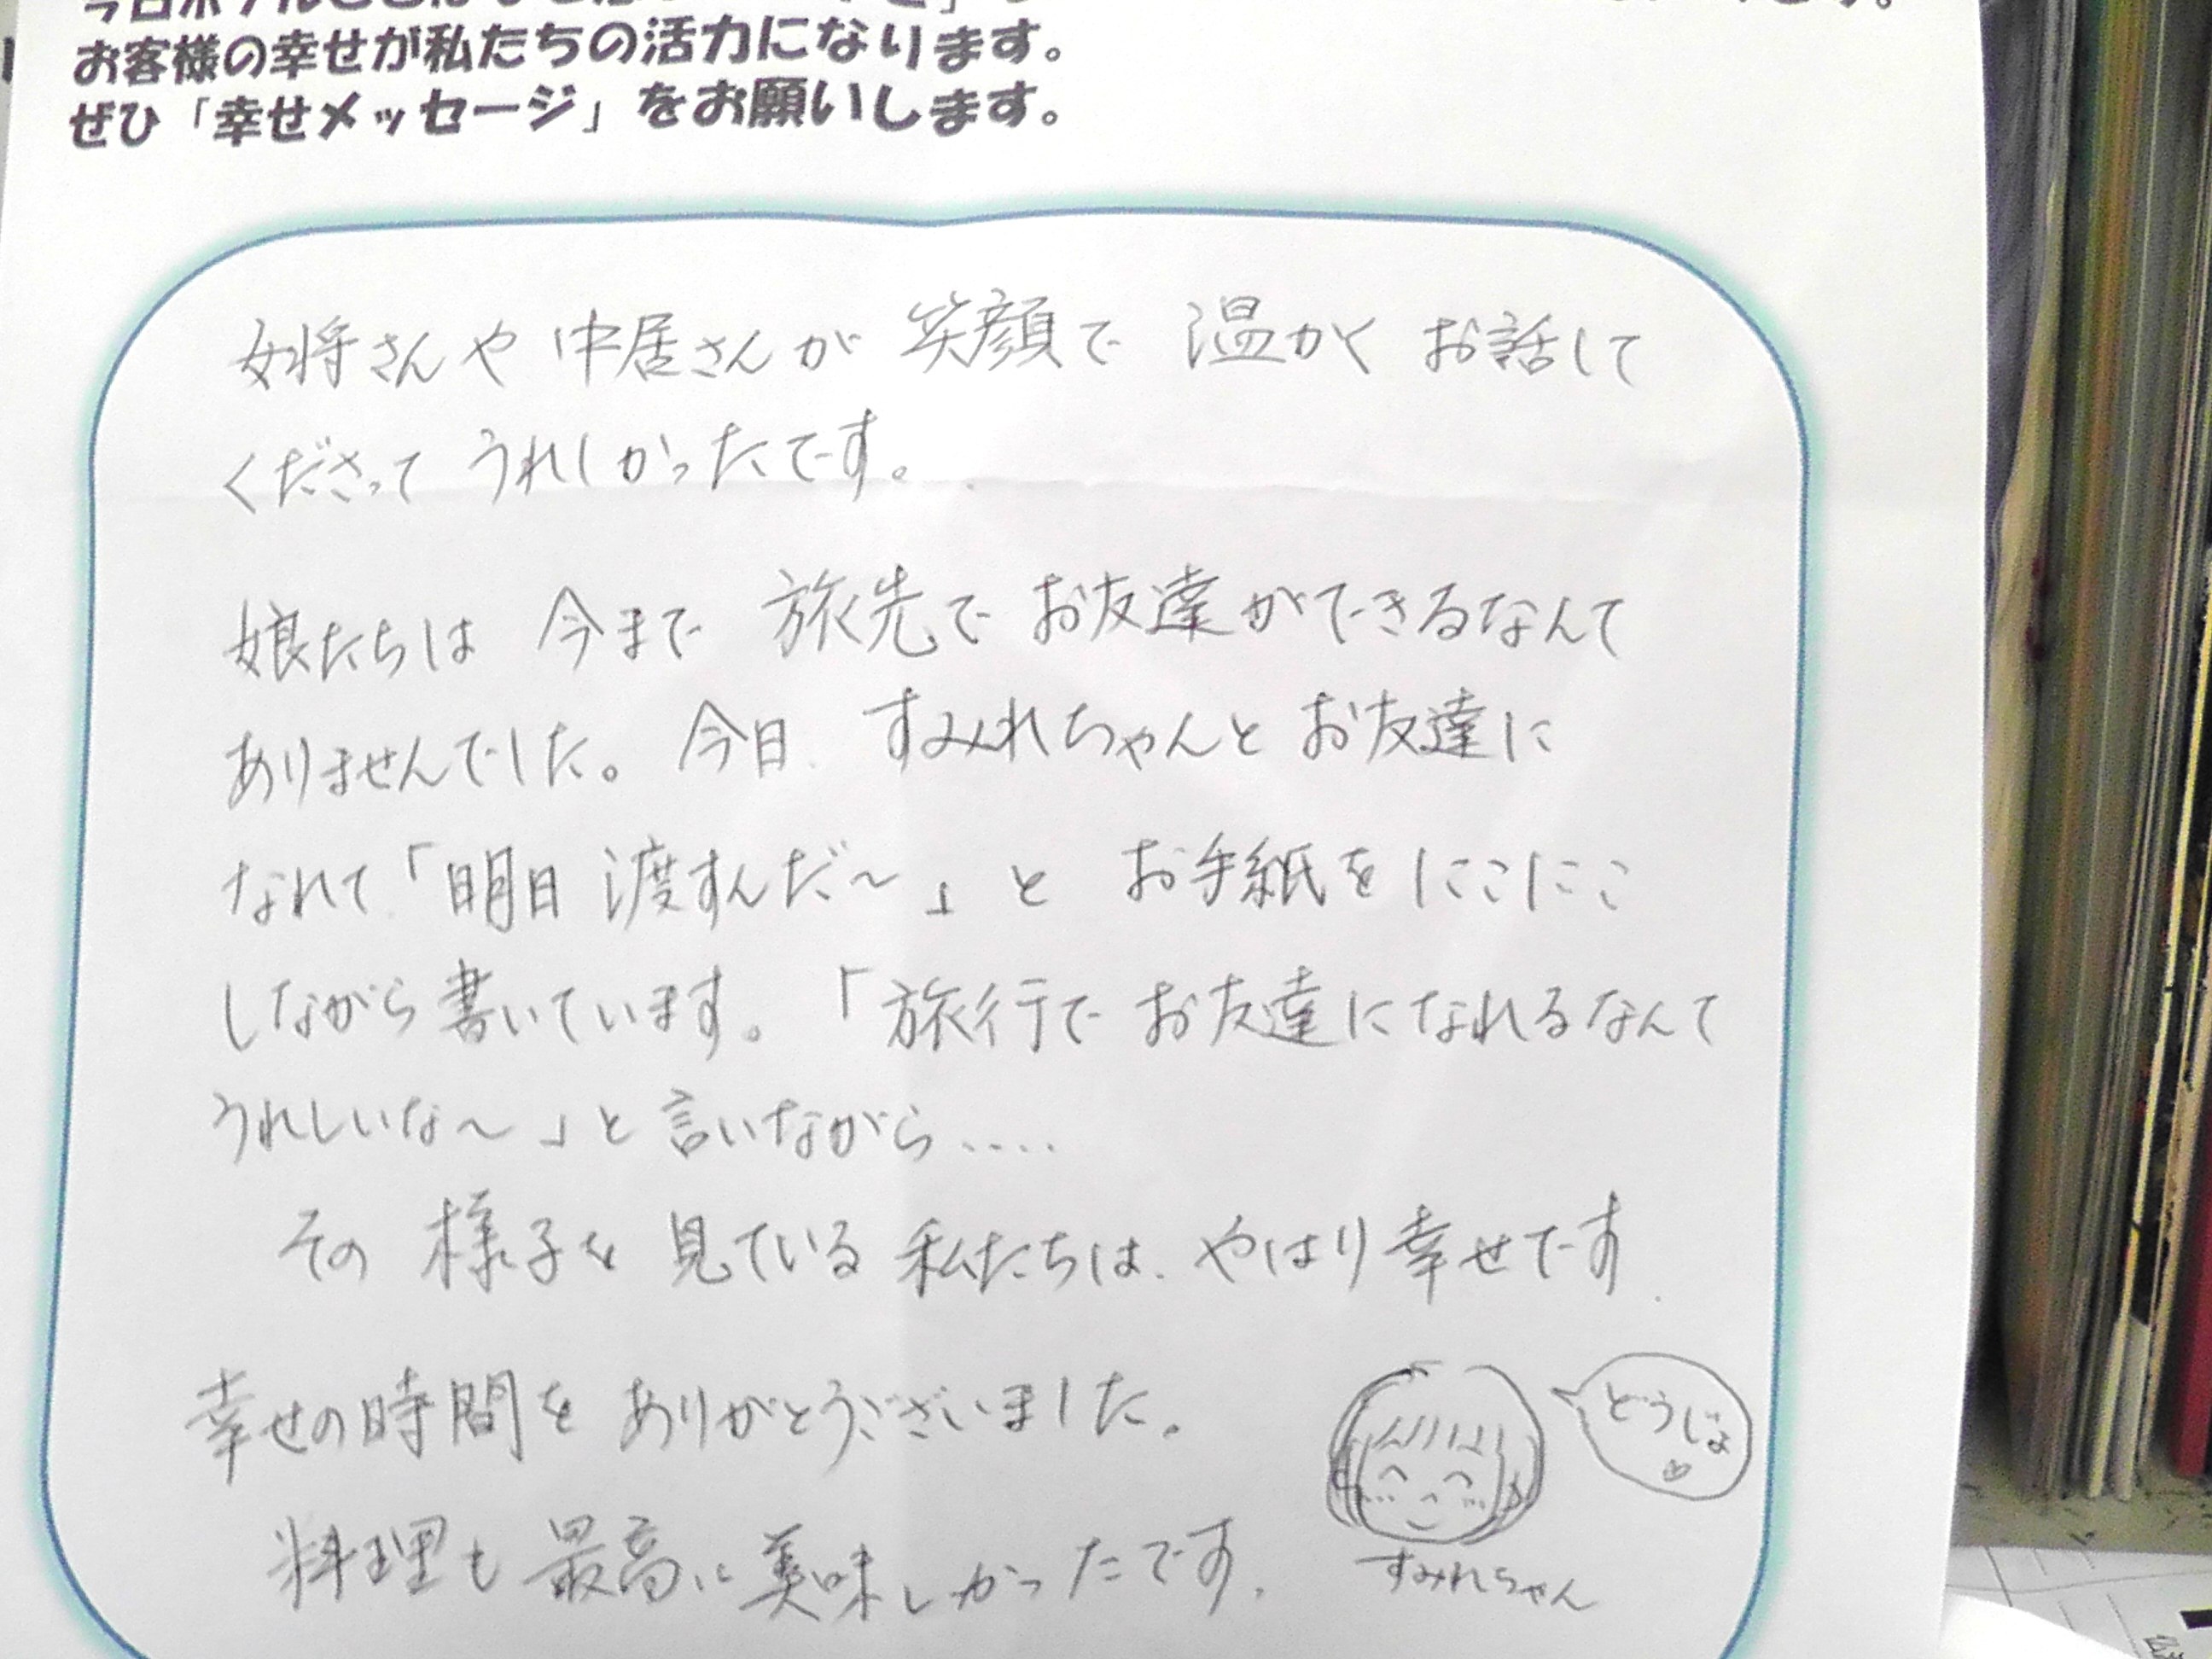 お客様の幸せが私たちの活力になります。
ぜひ「幸せメッセージ」をお願いします。
女将さんや中居さんが笑顔で温かくお話して
くださってうれしかったです。
娘たちは今まで旅先でお友達ができるなんて
ありませんでした。今日、すみれちゃんとお友達に
なれて「明日渡すんだ〜」とお手紙をにこにこ
しながら書いています。「旅行でお友達になれるなんて
うれしいな〜」と言いながら.....
その様子を見ている私たちは、やはり幸せです.
幸せの時間をありがとうございました。
料理も最高に美味しかったです.
どうじょ
♡
すみれちゃん